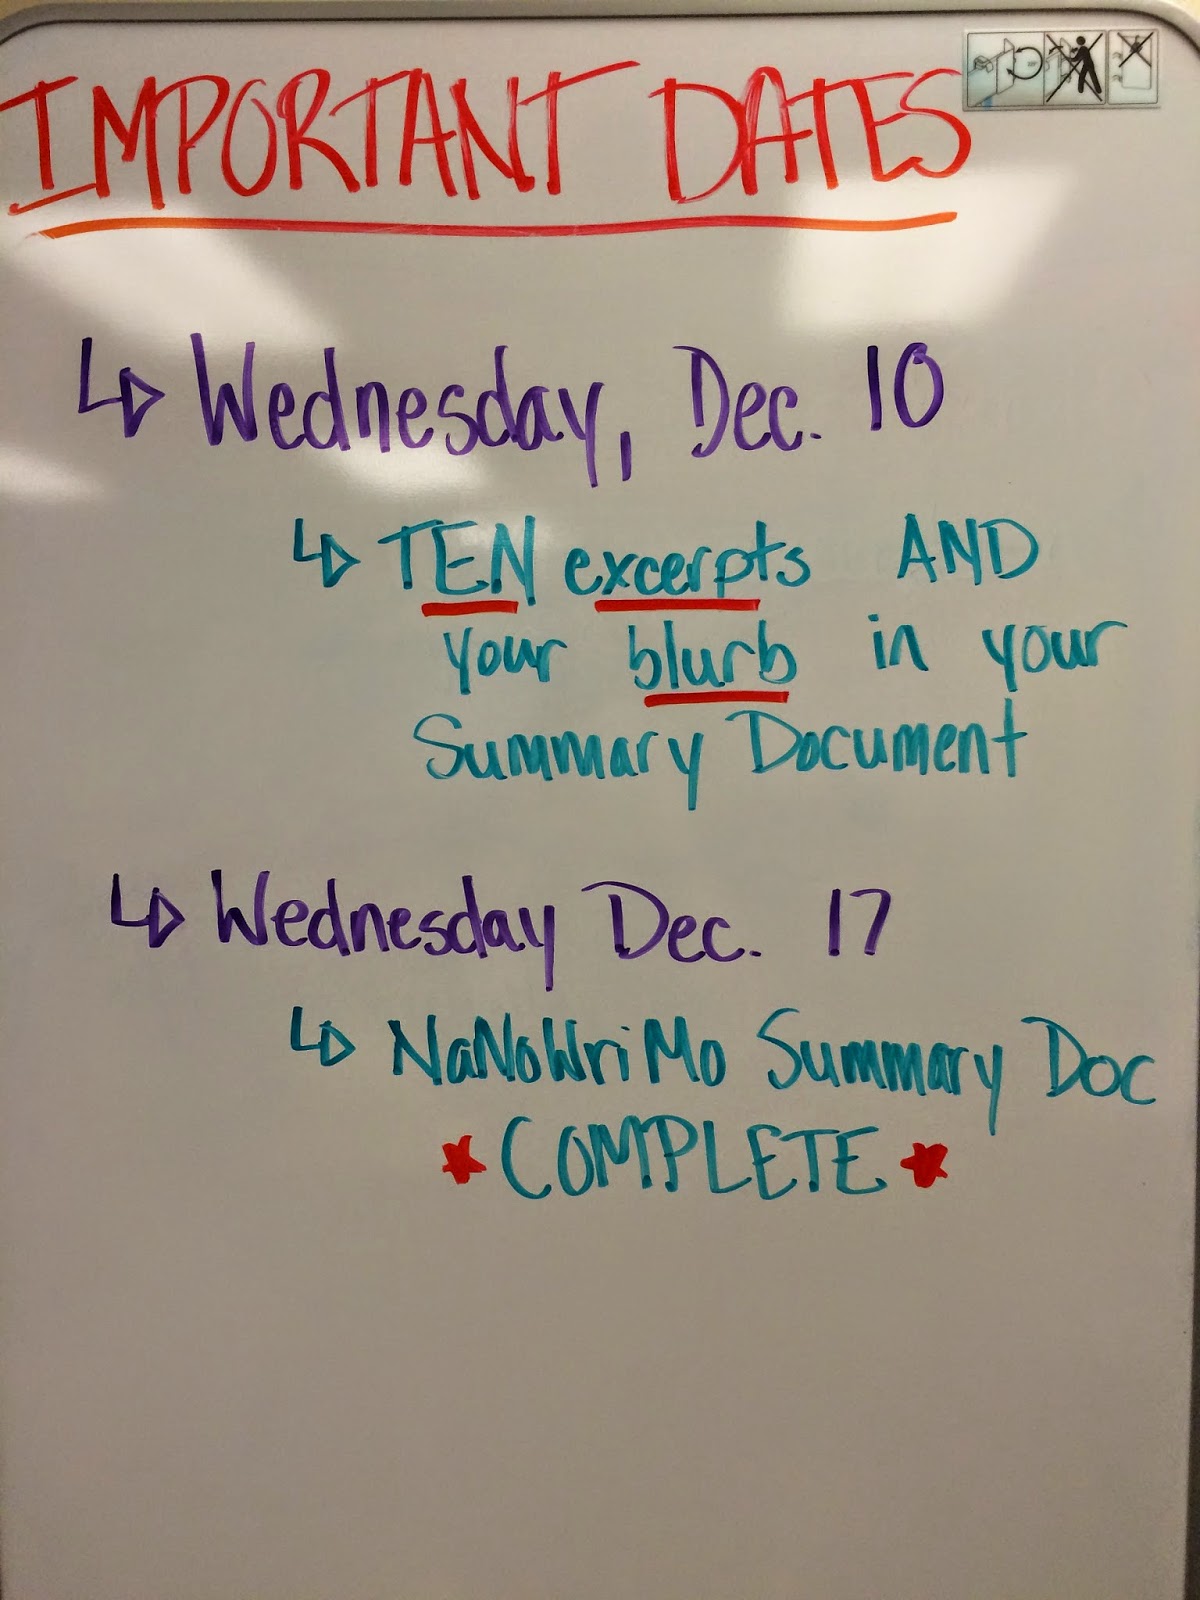 IMPORTANT DATES
Wednesday, Dec. 10
TEN excerpts AND
your blurb in your
Summary Document
Wednesday Dec. 17
NaNoWriMo Summary Doc
COMPLETE